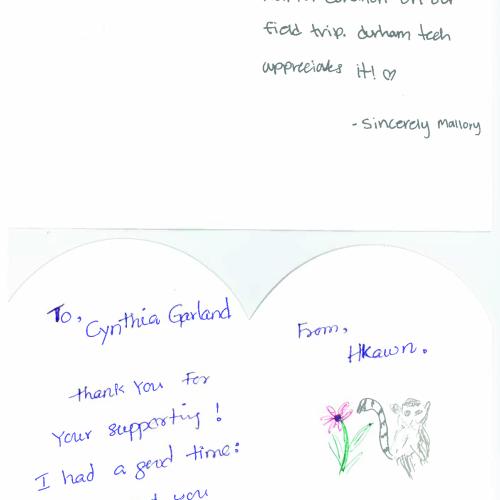 on our
field trip. durham tech
appreciates it! ♡
- Sincerely Mallory
To,
Cynthia Garland
From,
Hkawn.
thank You For
Your supporting !
I had a good time:
you